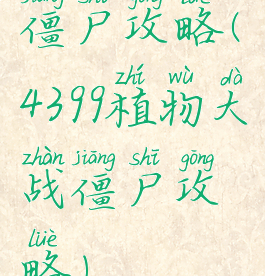 僵尸攻略(
zhí wù dà
4399植物大
zhàn jiāng shī gōng
战僵尸攻
lüè
略)